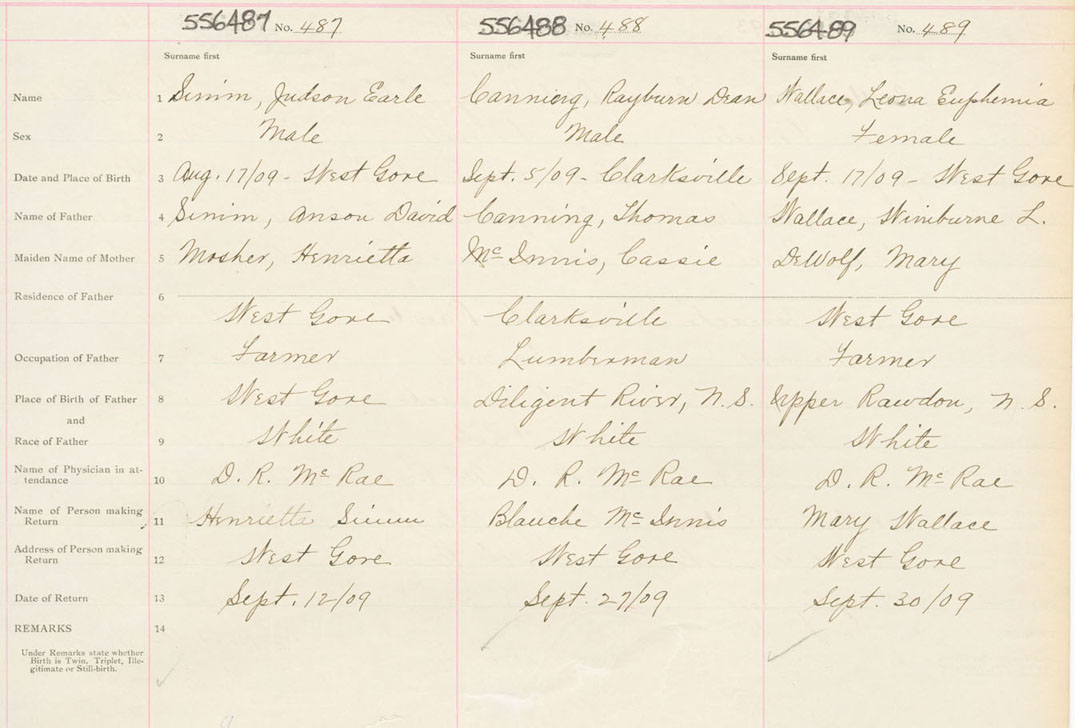 556487 No. 487 556488 No. 488 556489 No. 489
Surname first Surname first Surname first
Name 1 Simm, Judson Earle Canning, Rayburn Dean Wallace, Leona Euphemia
Sex 2 Male Male Female
Date and Place of Birth 3 Aug. 17/09 - West Gore Sept. 5/09 - Clarksville Sept. 17/09 - West Gore
Name of Father 4 Simm, Anson David Canning, Thomas Wallace, Winburne L.
Maiden Name of Mother 5 Mosher, Henrietta McInnis, Cassie DeWolf, Mary
Residence of Father 6
West Gore Clarksville West Gore
Occupation of Father 7 Farmer Lumberman Farmer
Place of Birth of Father 8 West Gore Diligent River, N.S. Upper Rawdon, N.S.
and
Race of Father 9 White White White
Name of Physician in at-
tendance 10 D. R. McRae D. R. McRae D. R. McRae
Name of Person making
Return 11 Henrietta Simm Blanche McInnis Mary Wallace
Address of Person making
Return 12 West Gore West Gore West Gore
Date of Return 13 Sept. 12/09 Sept. 27/09 Sept. 30/09
REMARKS 14
Under Remarks state whether
Birth is Twin, Triplet, Ille-
gitimate or Still-birth.